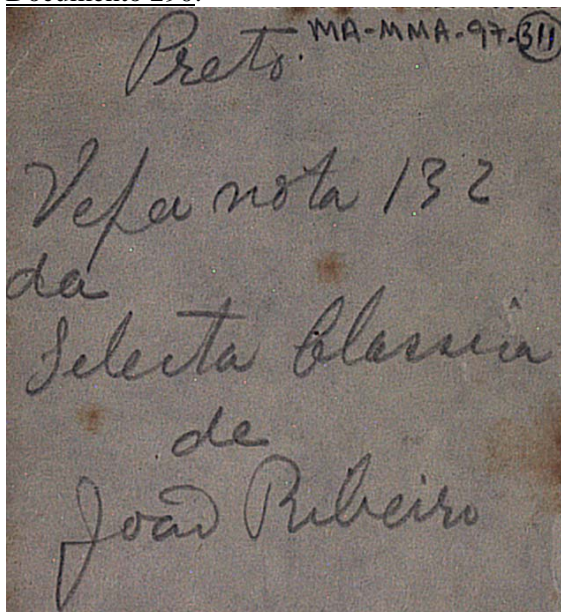 Documento 296:
Preto. MA-MMA-97-311
Veja nota 132
da
Selecta Classica
de
João Ribeiro